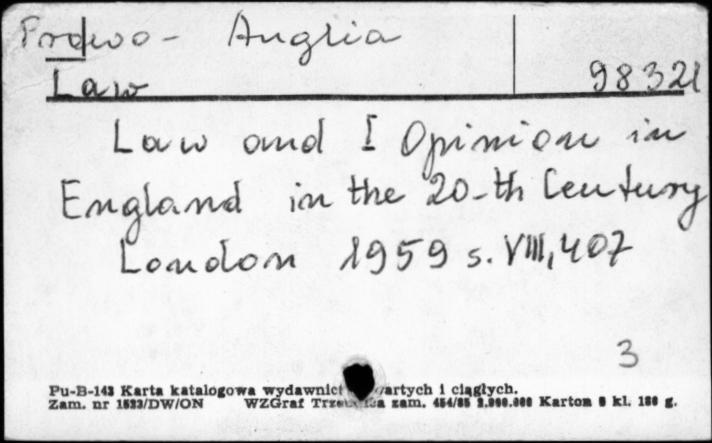 Prawo - Anglia
Law 98321
Law and I Opinion in
England in the 20-th Century
London 1959 s. VIII, 407
3
Pu-B-143 Karta katalogowa wydawnict artych i ciągłych.
Zam. nr 1523/DW/ON WZGraf zam. 454/85 Karton kl. g.